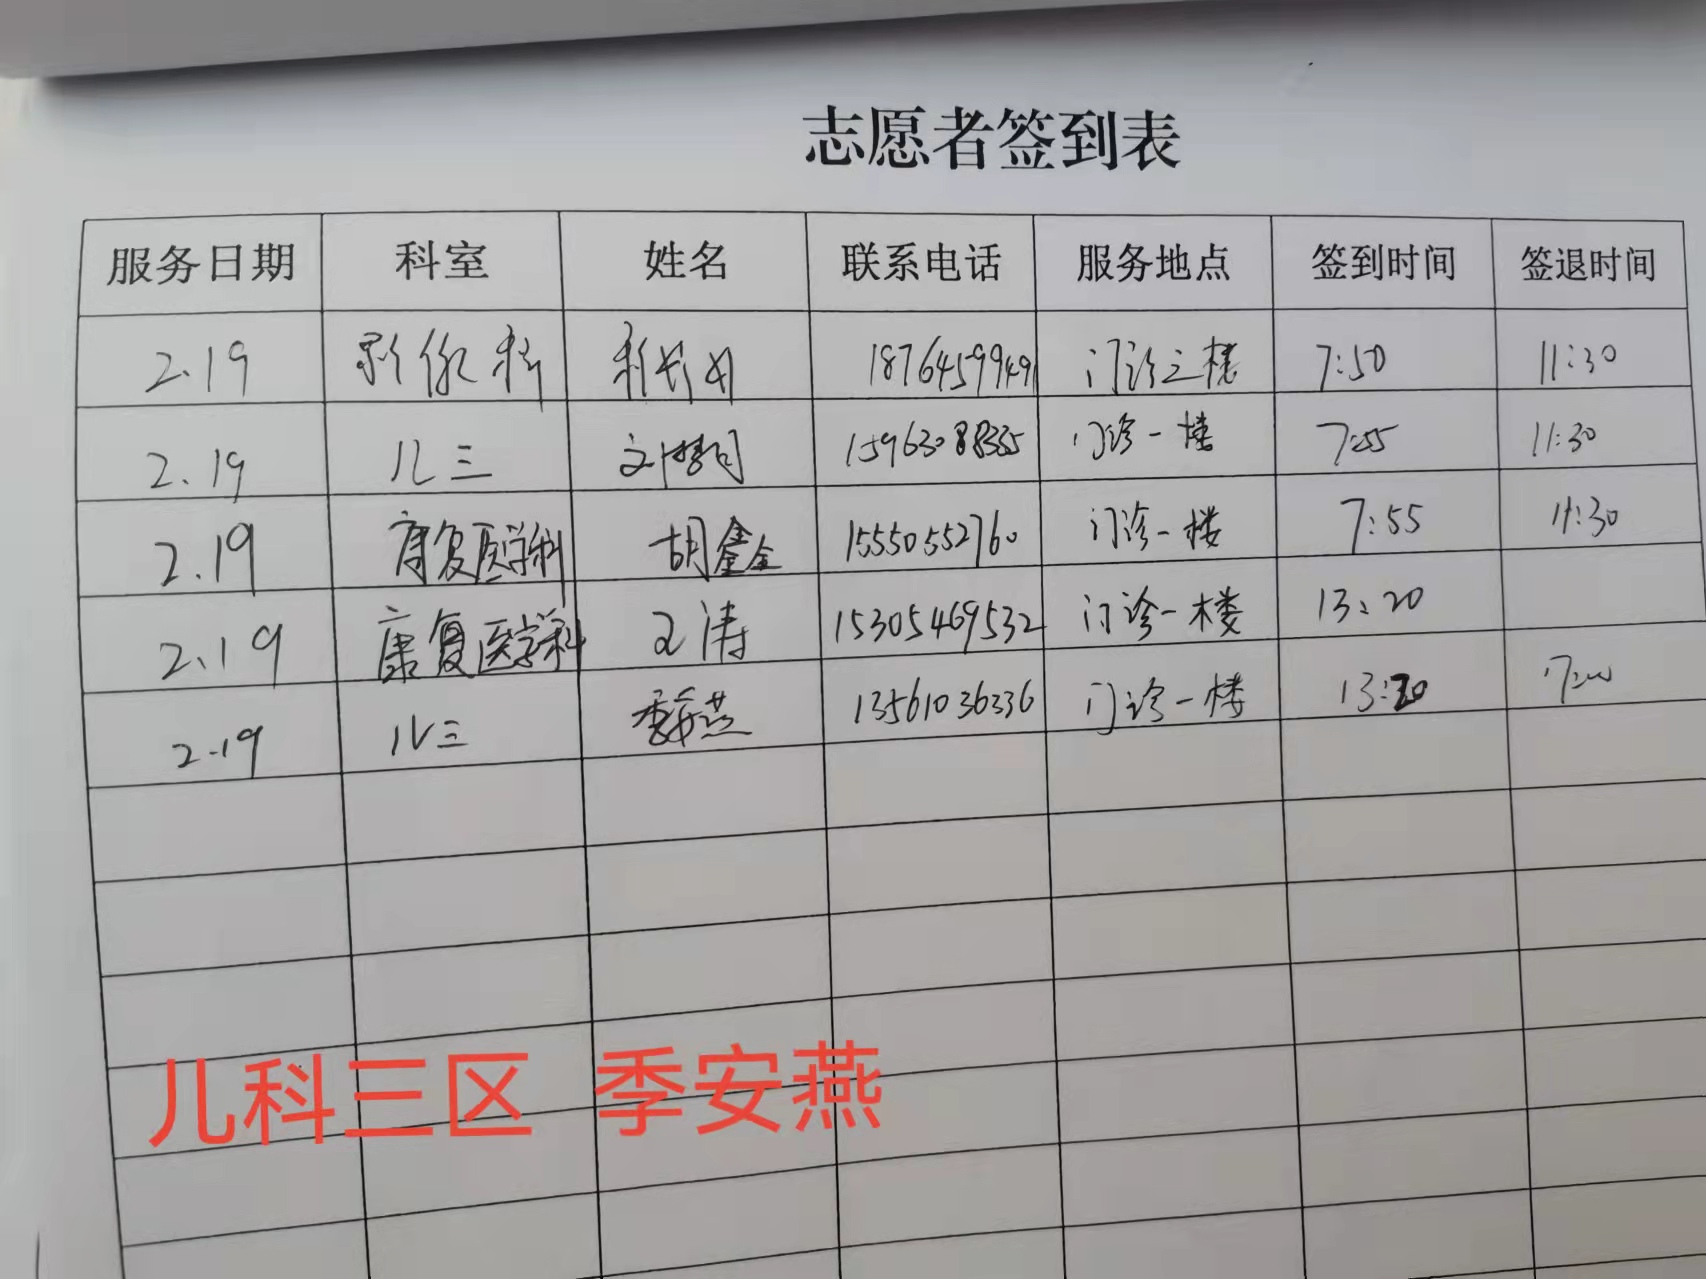 志愿者签到表
服务日期 科室 姓名 联系电话 服务地点 签到时间 签退时间
2.19 影像科 18764599491 门诊三楼 7:50 11:30
2.19 儿三 15963088335 门诊一楼 7:55 11:30
2.19 康复医学科 胡鑫鑫 15550552760 门诊一楼 7:55 11:30
2.19 康复医学科 王涛 15305469532 门诊一楼 13:20
2.19 儿三 季安燕 13561036336 门诊一楼 13:20 17:00
儿科三区 季安燕